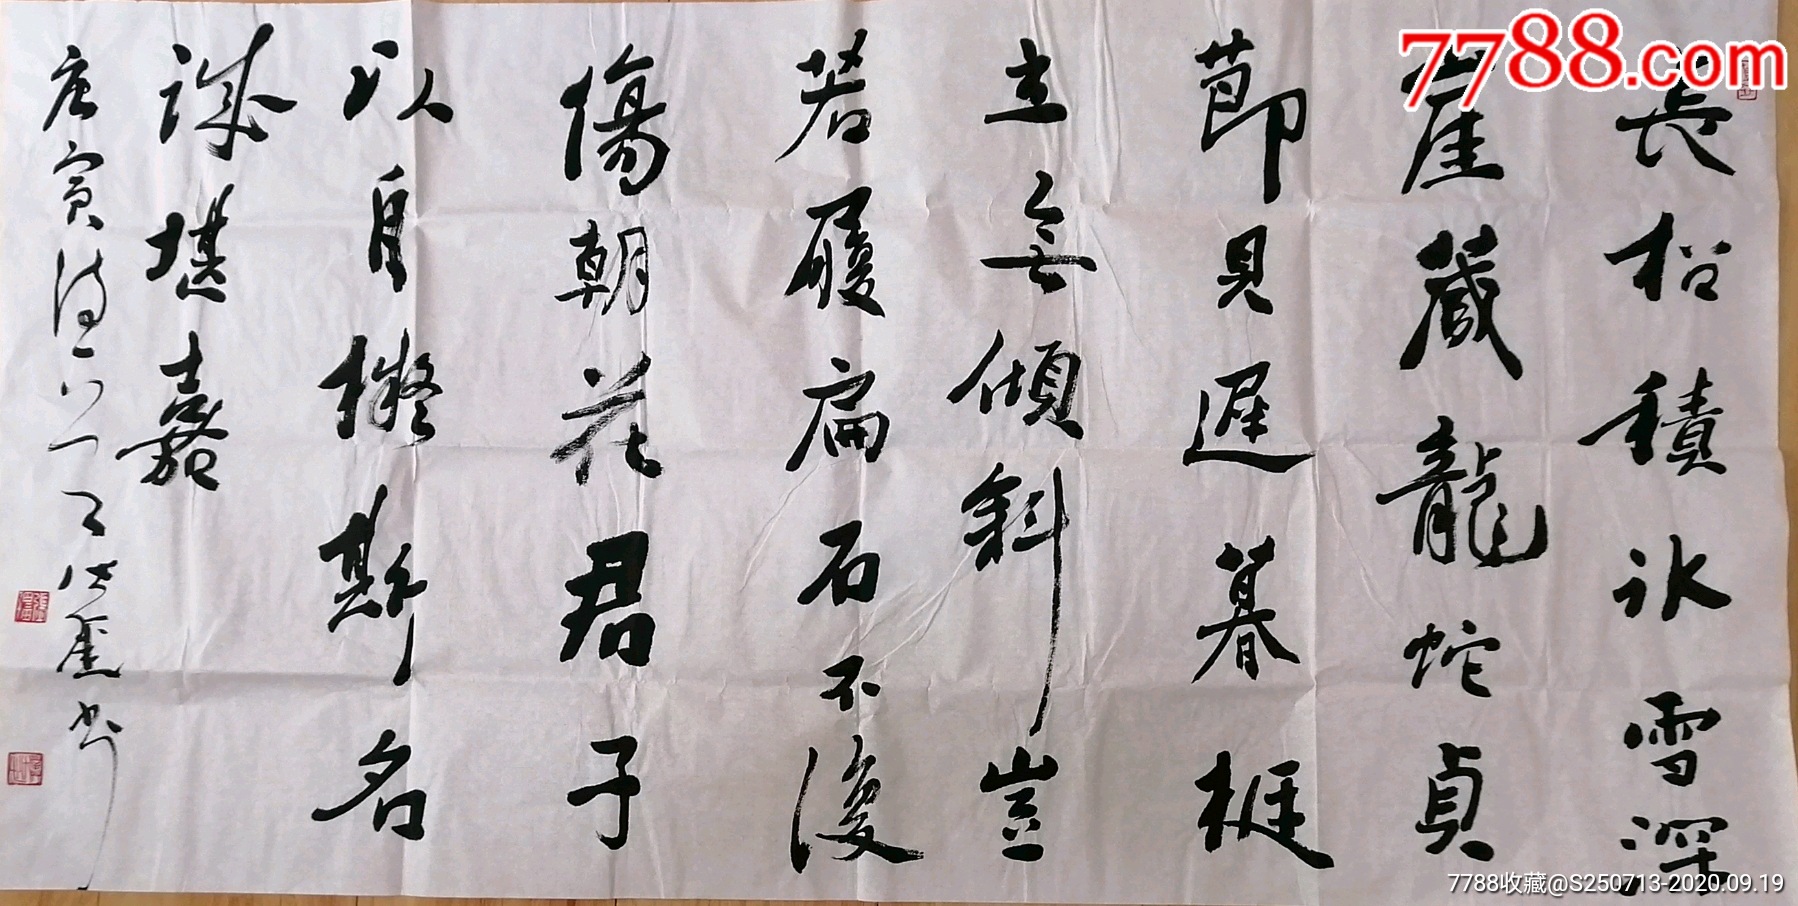 長松積冰雪深
崖藏龍蛇貞
節見遲暮挺
立無傾斜豈
若履扁石不復
傷朝花君子
以自擬斯名
誠堪嘉
庚寅
書
7788.com
7788收藏@S250713-2020.09.19